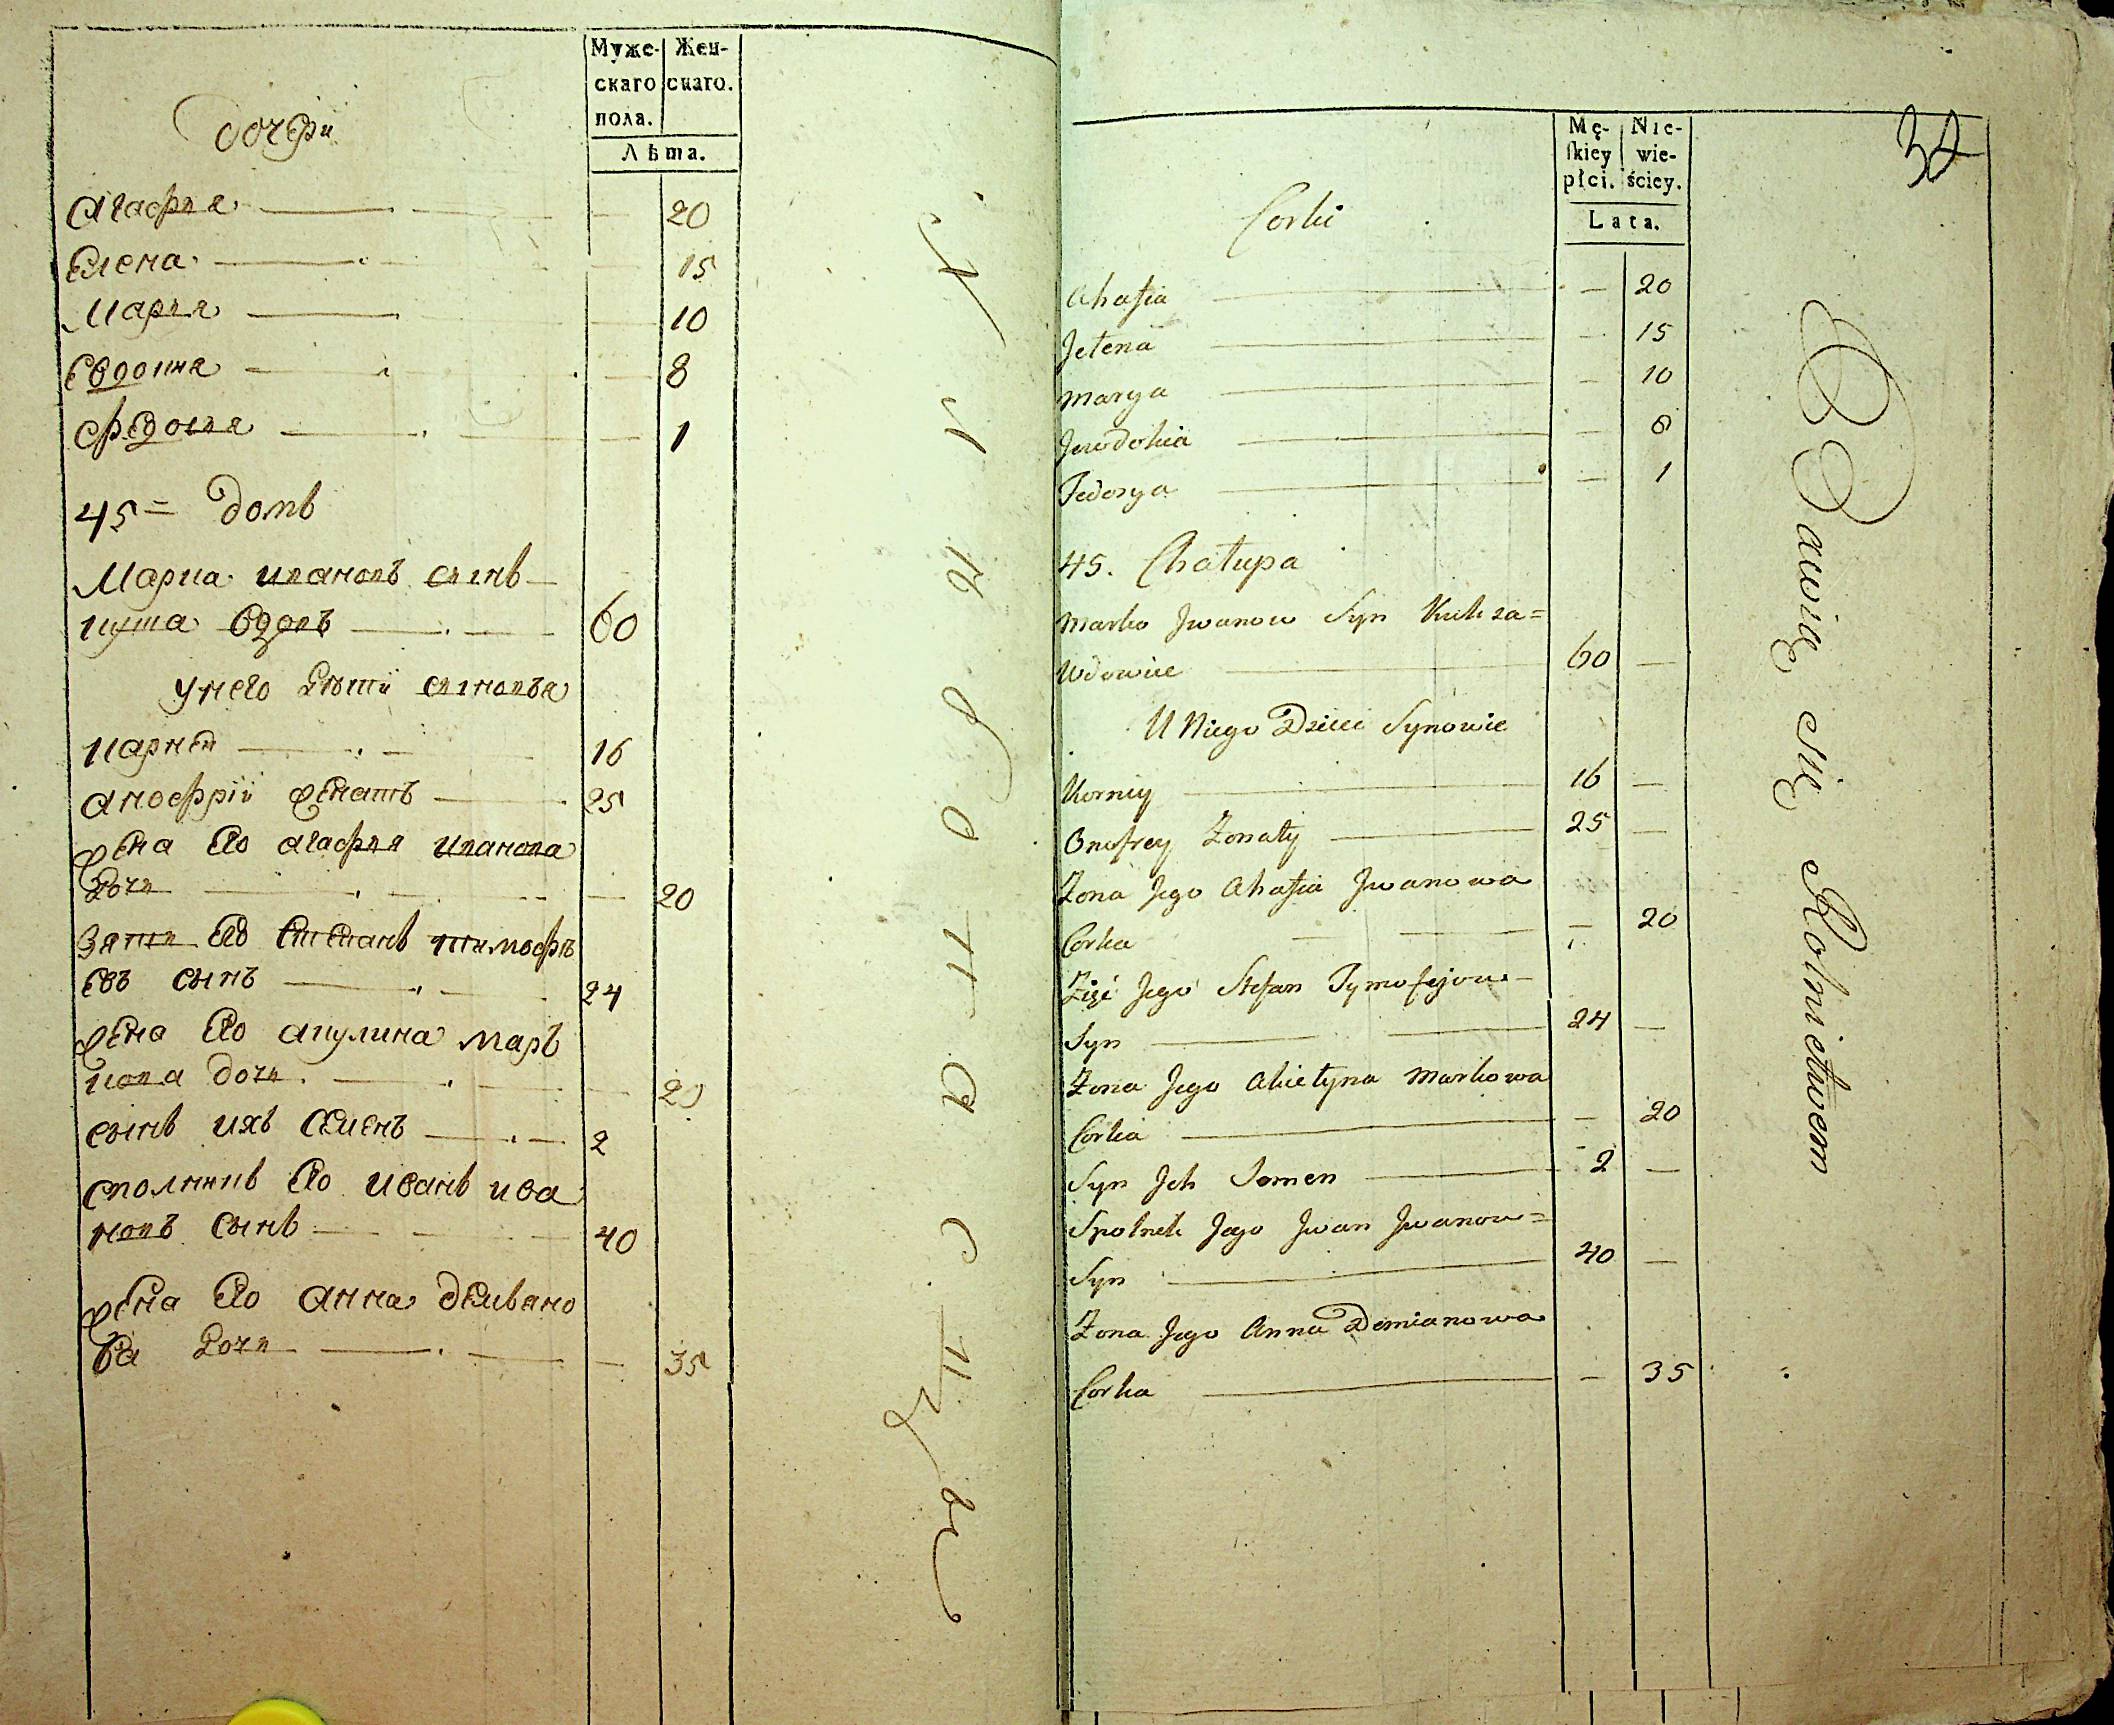 Муже-
скаго
пола.
Жен-
скаго.
Лѣта.
дочери
агафия 20
Елена 15
Мария 10
Евдокия 8
федосия 1
45 = домъ
Марко ивановъ сынъ
вдовъ 60
у него дѣти сыновья
карней 16
анофрiй женатъ 25
жена его агафия иванова
дочь 20
зять его стефанъ тимофѣ
евъ сынъ 24
жена его акулина мар
кова дочь 20
сынъ ихъ семенъ 2
сполникъ его иванъ ива
новъ сынъ 40
жена его анна демьяно
ва дочь 35
Mę-
skiey
płci.
Nie-
wie-
ściey.
Lata.
34
Corki
Ahafia 20
Jelena 15
Marya 10
Jewdokia 8
Fedosya 1
45. Chałupa
Marko Jwanow Syn
Wdowiec 60
U Niego Dzieci Synowie
Korniy 16
Onufrey Żonaty 25
Żona Jego Ahafia Jwanowa
Corka 20
Zięć Jego Stefan Tymofejow
Syn 24
Żona Jego Akielyna Markowa
Corka 20
Syn Jch Semen 2
Spolnik Jego Jwan Jwanow=
Syn 40
Żona Jego Anna Demianowa
Corka 35
Bawią się Rolnictwem